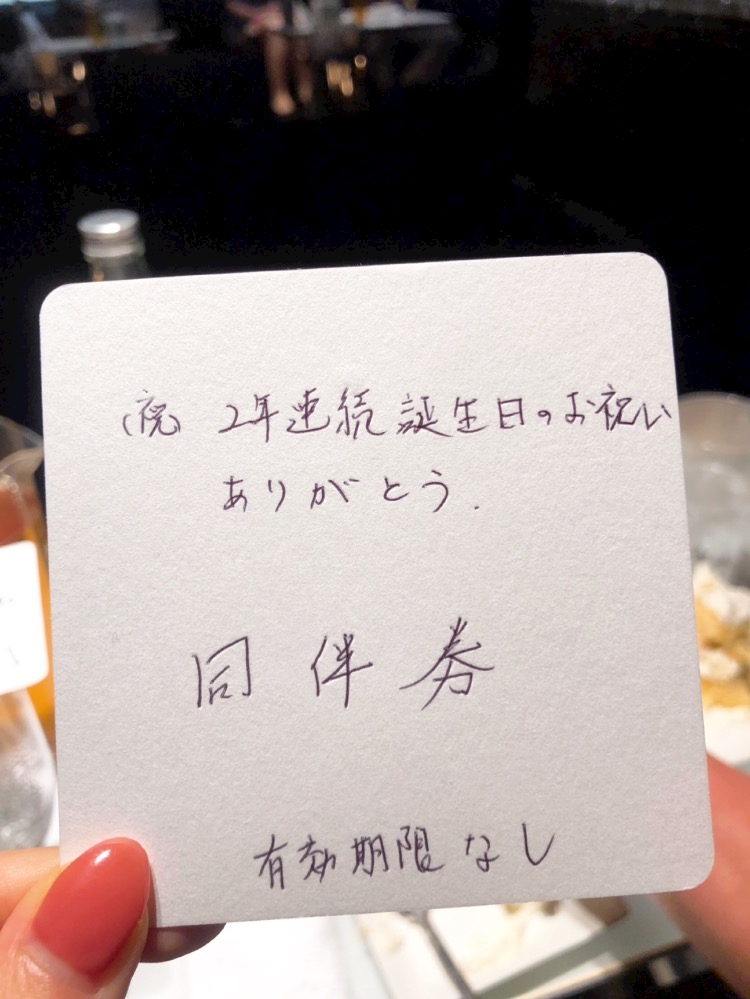 (祝) 2年連続誕生日のお祝い
ありがとう.
同伴券
有効期限なし